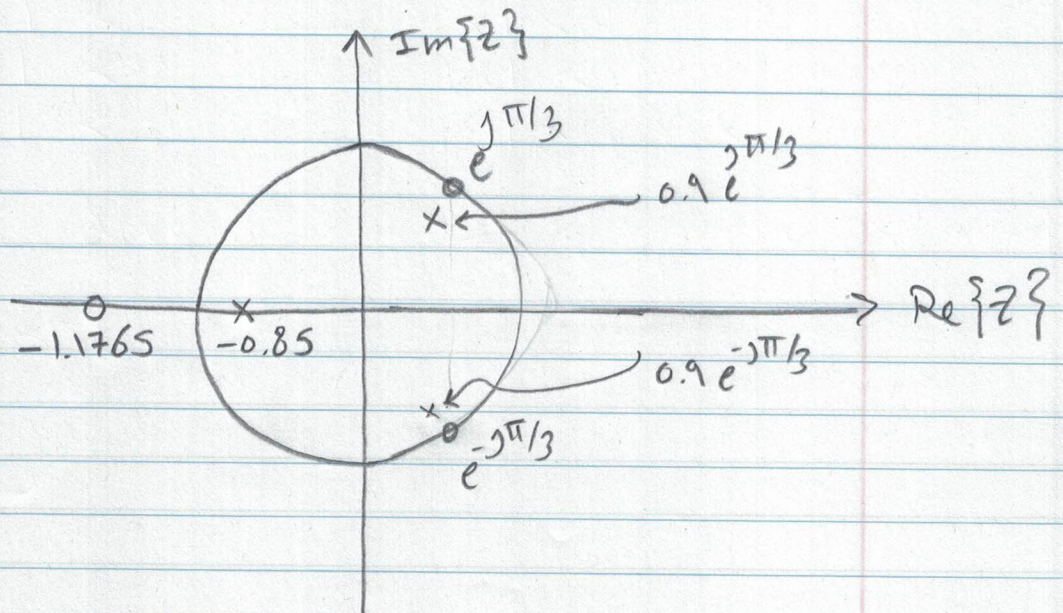 Im{Z}
e^jπ/3
0.9 e^jπ/3
Re{Z}
-1.1765
-0.85
0.9 e^-jπ/3
e^-jπ/3